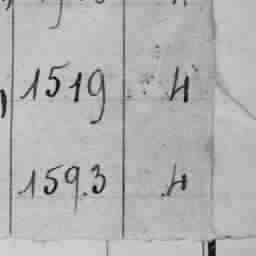 1519 4
1593 4